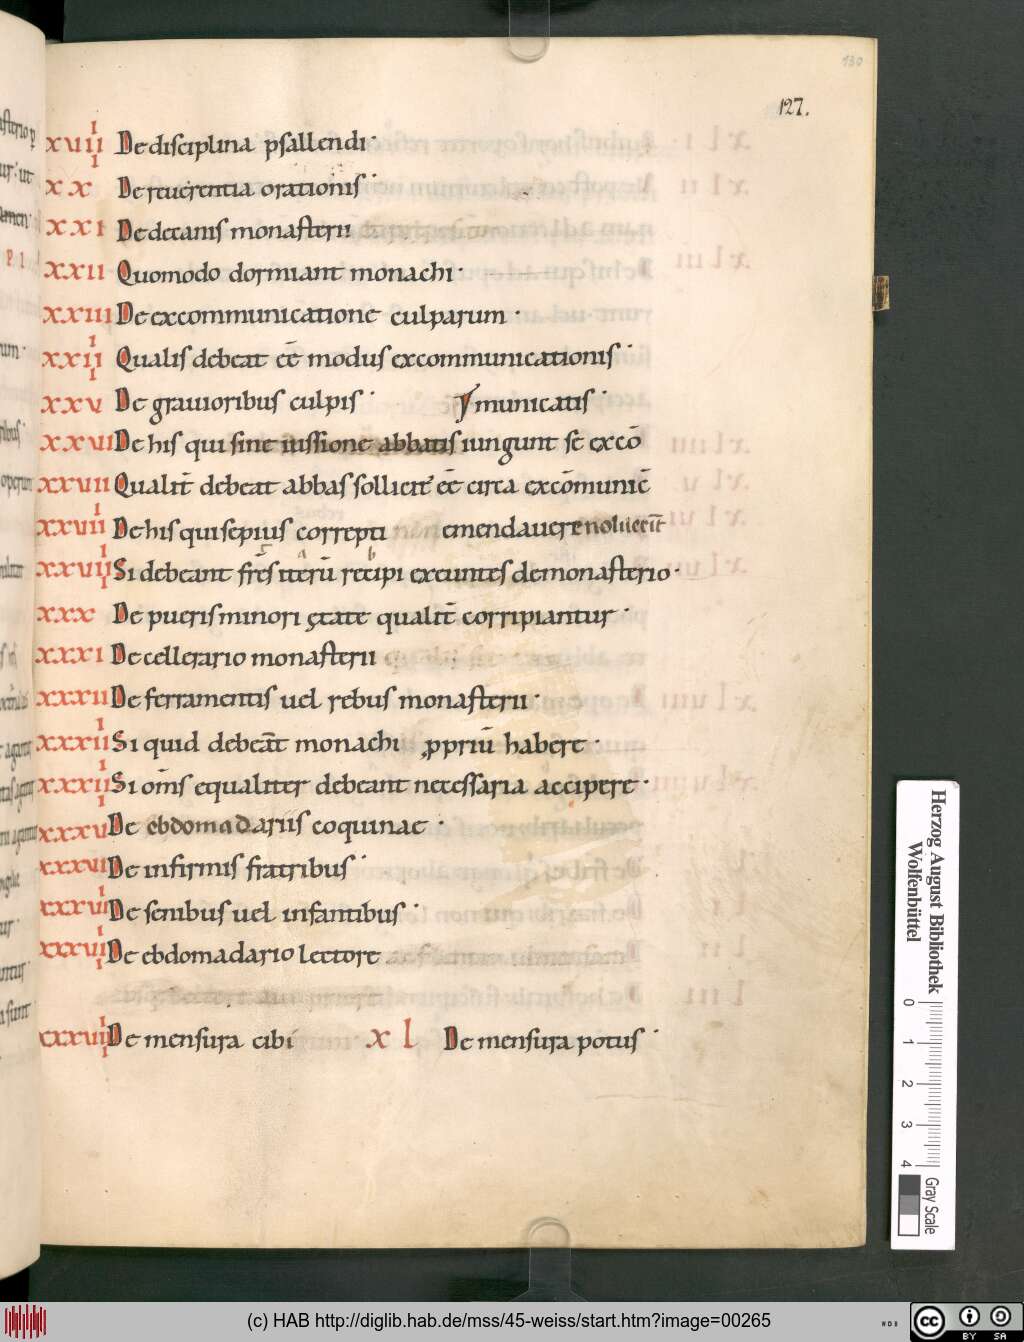 130
127.
xuiiii De disciplina psallendi·
xx De reuerentia orationis·
xxi De decanis monasterii
xxii Quomodo dormiant monachi·
xxiii De excommunicatione culparum·
xxiiii Qualis debeat eē modus excommunicationis·
xxv De grauioribus culpis· municatis·
xxvi De his qui sine iussione abbatis iungunt se excō
xxvii Qualit̄ debeat abbas sollicit' eē circa excōmunic̄
xxviii De his qui sepius correpti emendauere noluerit̄
xxviiii Si debeant fr̄es iterū recipi exeuntes de monasterio·
xxx De pueris minori ętate qualit̄ corripiantur·
xxxi De cellerario monasterii
xxxii De ferramentis uel rebus monasterii·
xxxiii Si quid debeāt monachi ꝓpriū habere·
xxxiiii Si om̄s equaliter debeant necessaria accipere·
xxxv De ebdomadariis coquinae·
xxxvi De infirmis fratribus·
xxxvii De senibus uel infantibus·
xxxviii De ebdomadario lectore
xxxviiii De mensura cibi xl De mensura potus·
Herzog August Bibliothek
Wolfenbüttel
0 1 2 3 4
Gray Scale
(c) HAB http://diglib.hab.de/mss/45-weiss/start.htm?image=00265
cc BY SA